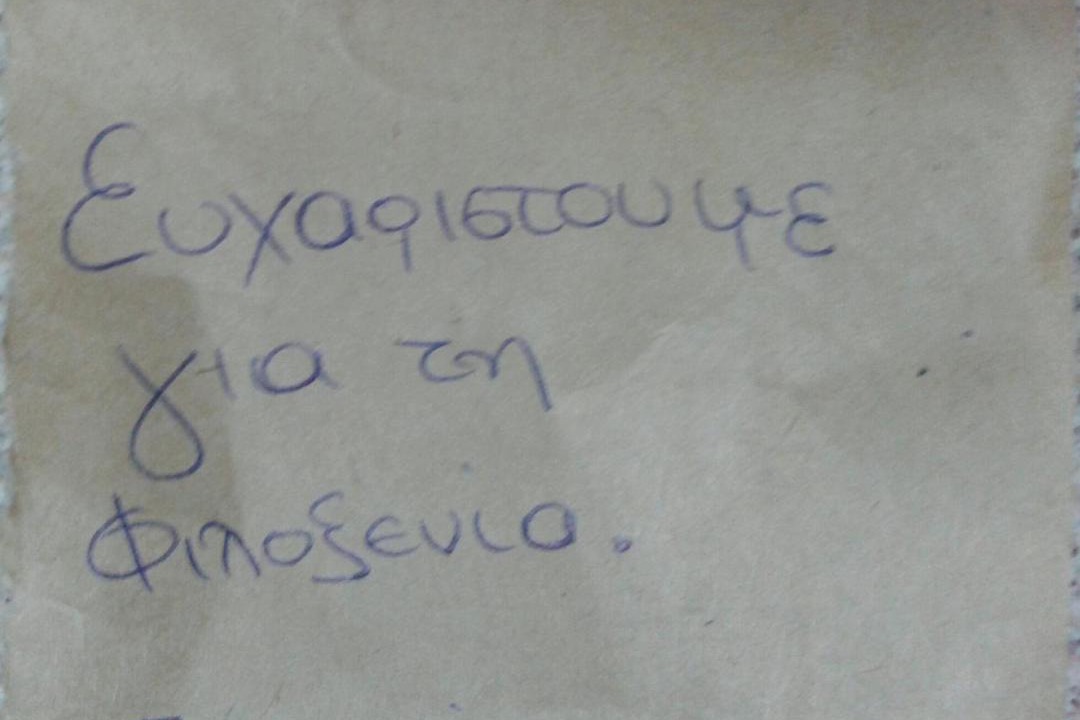 Ευχαριστουμε
για τη
φιλοξενια.